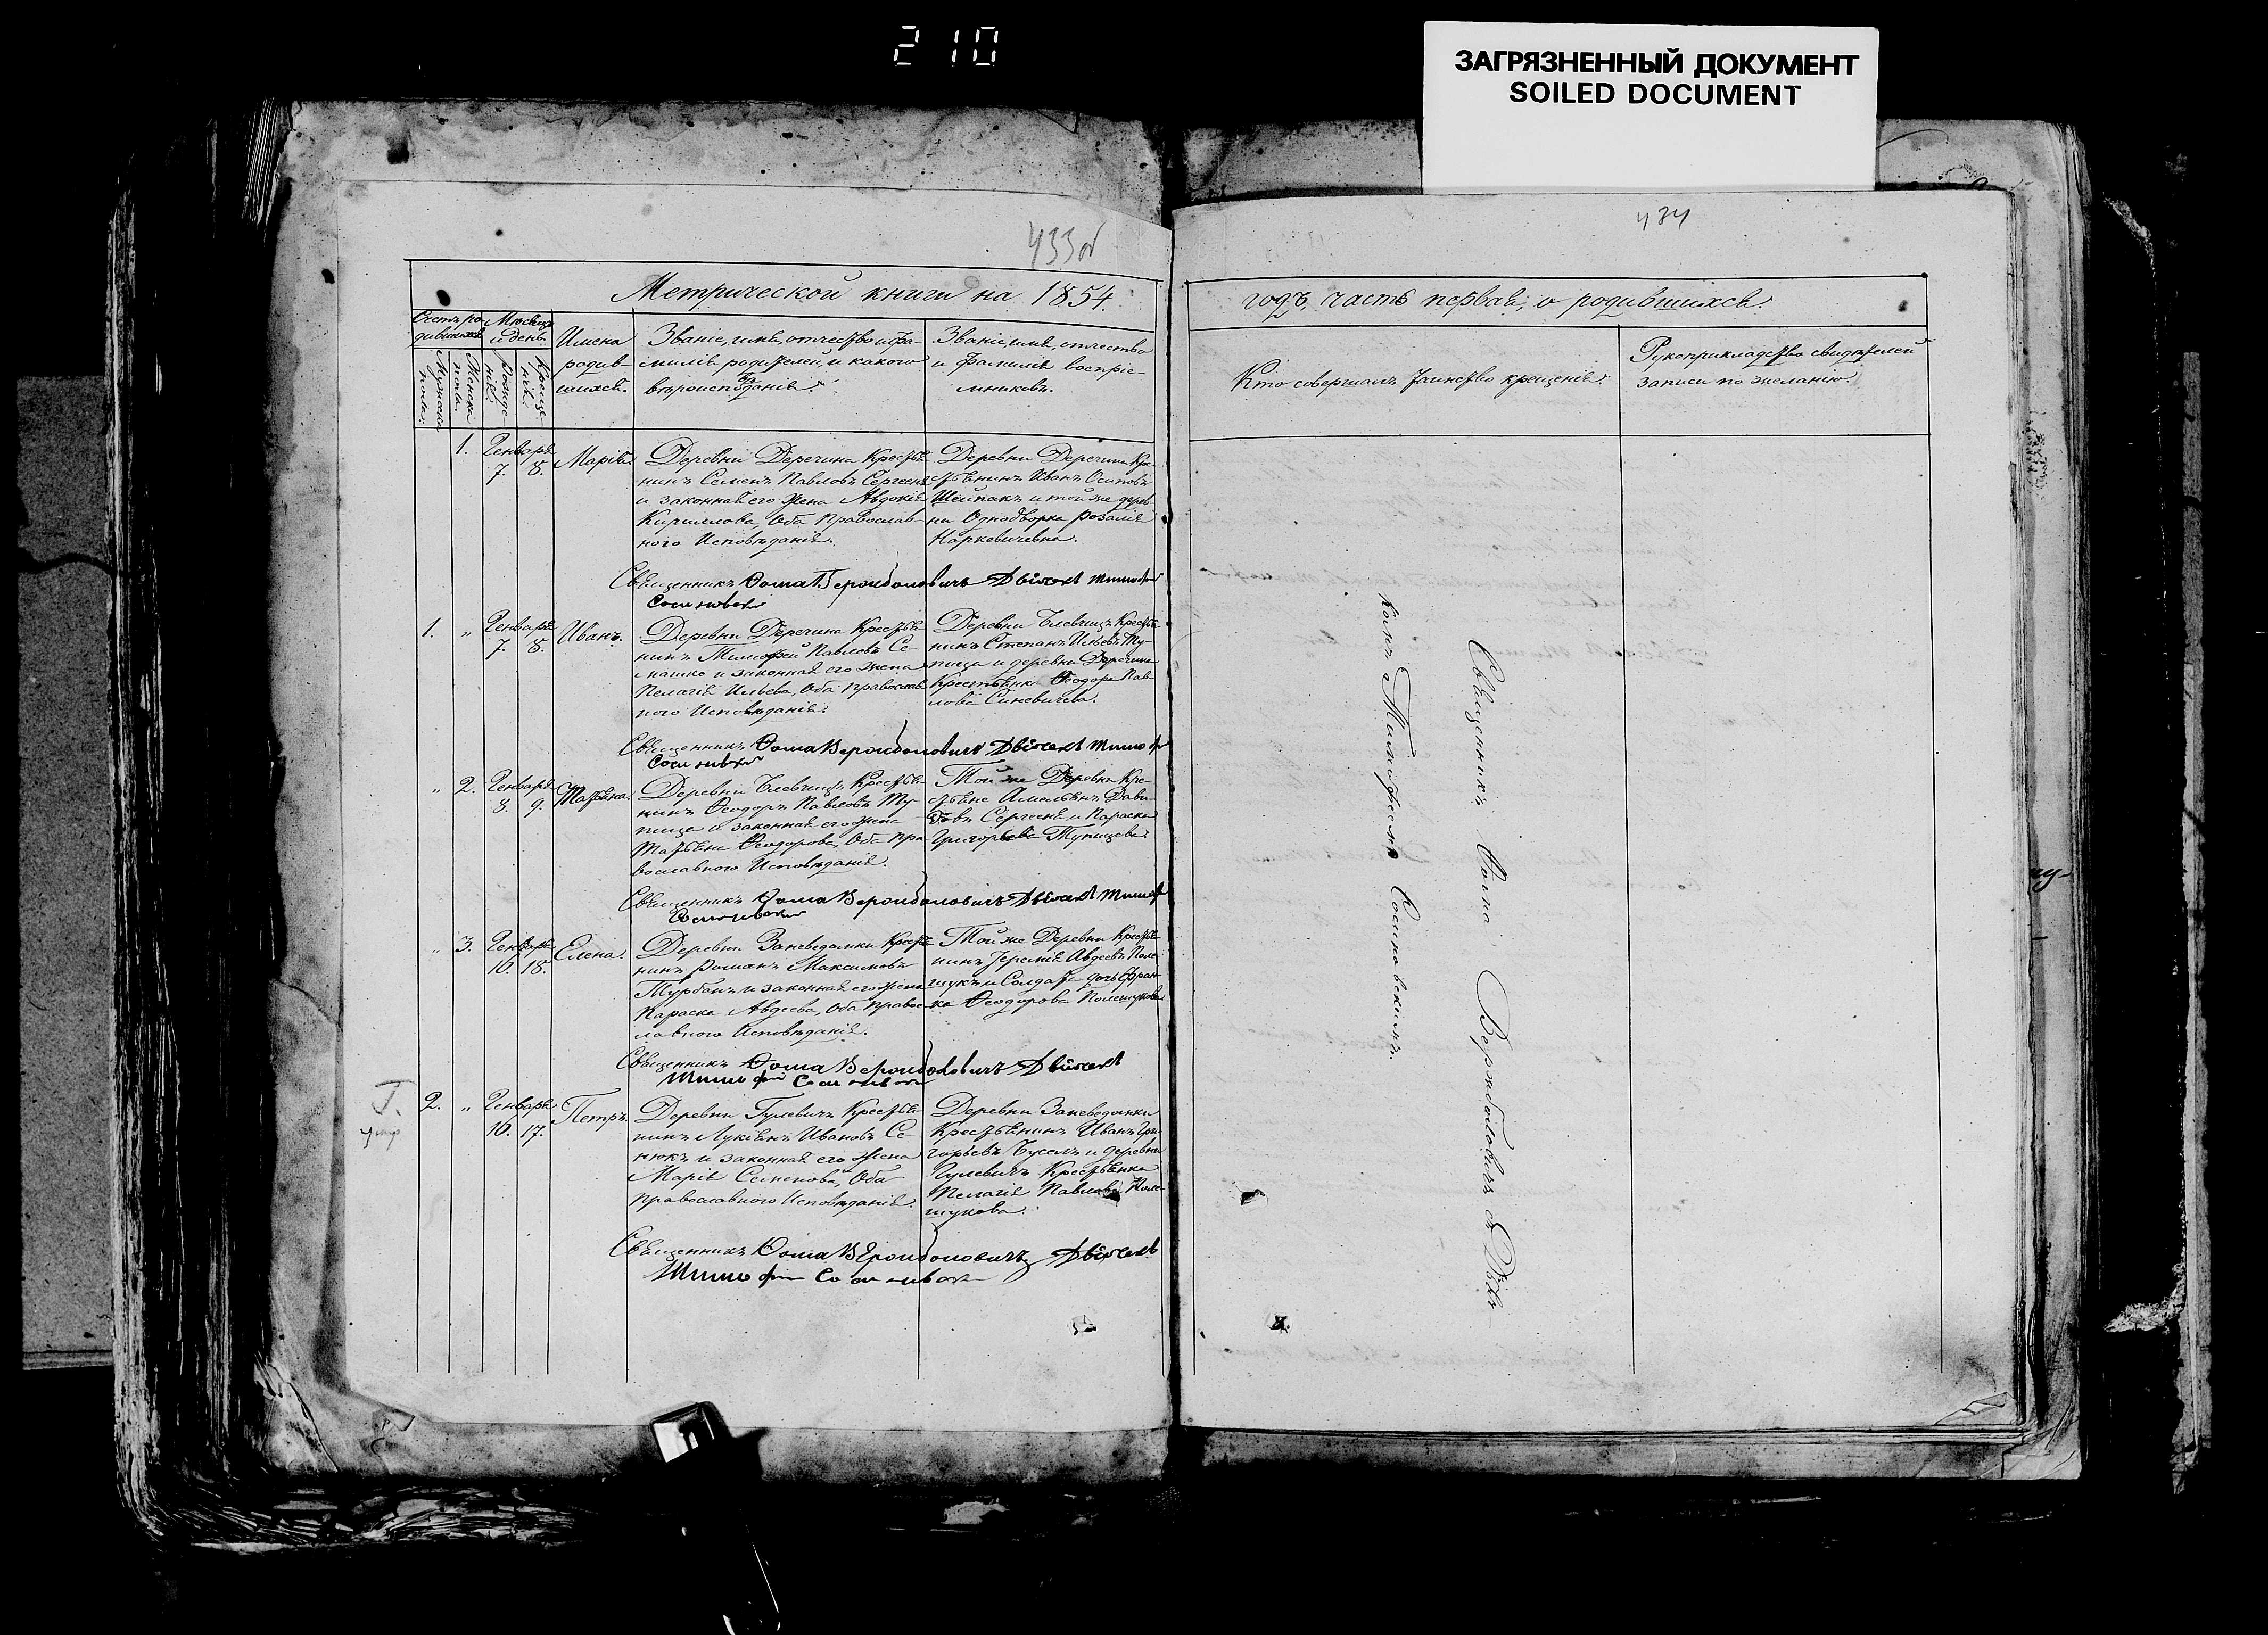 210
ЗАГРЯЗНЕННЫЙ ДОКУМЕНТ
SOILED DOCUMENT
433об
434
Метрической книги на 1854.
годъ, часть первая, о родившихся.
Счетъ ро-
дившихся
Мѣсяцъ
и день.
Мужеска
пола.
Женска
пола.
Рожде-
нія.
Креще-
нія.
Имена
родив-
шихся.
Званіе, имя, отчество и фа-
милія родителей, и какого
вѣроисповѣданія.
Званіе, имя, отчество
и фамилія воспріе-
мниковъ.
Кто совершалъ таинство крещенія.
Рукоприкладство свидѣтелей
записи по желанію.
1. Генваря
7. 8.
Марія
Деревни Деречина Крестья-
нинъ Семенъ Павловъ Сергеея
и законная его жена Авдокія
Кириллова, Оба Православ-
наго Исповѣданія.
Деревни Деречина Кре-
стьянинъ Иванъ Осиповъ
Шейпакъ и той же дерев-
ни Однодворка Розалія
Наркевичевна.
Священникъ Фома
1. " Генваря
7. 8.
Иванъ.
Деревни Деречина Крестья-
нинъ Тимофей Павловъ Се-
машко и законная его жена
Пелагія Ильева, Оба православ-
наго Исповѣданія.
Деревни Крестья-
нинъ Степанъ Ильевъ Ту-
пица и деревни Деречина
Крестьянка Ѳеодора Пав-
лова Синевичева.
Священникъ Фома
" 2. Генваря
8. 9.
Татьяна.
Деревни Крестья-
нинъ Ѳеодоръ Павловъ Ту-
пица и законная его жена
Татьяна Ѳеодорова, Оба пра-
вославнаго Исповѣданія.
Той же Деревни Кре-
стьяне Амельянъ Дави-
довъ Сергеея и Параска
Григорьева Тупицева.
Священникъ Фома
" 3. Генваря
16. 18.
Елена.
Деревни Заневедомки Крестья-
нинъ Романъ Максимовъ
Турбанъ и законная его жена
Параска Авдеева, Оба Право-
славнаго Исповѣданія.
Той же Деревни Крестья-
нинъ Іеремія Авдеевъ Поле-
щукъ и Солдата дочь Фран-
ка Ѳеодорова Полещукова
Священникъ Фома
умр
2. " Генваря
16. 17.
Петръ.
Деревни Гулевичъ Крестья-
нинъ Лукіянъ Ивановъ Се-
нюкъ и законная его жена
Марія Семенова, Оба
православнаго Исповѣданія.
Деревни Заневедомки
Крестьянинъ Иванъ Гри-
горьевъ Бусель и деревни
Гулевичъ Крестьянка
Пелагія Павлова Поле-
щукова.
Священникъ Фома
Священникъ Фома Вержболовичъ съ Дья-
комъ Тимофеемъ Сосиновскимъ.